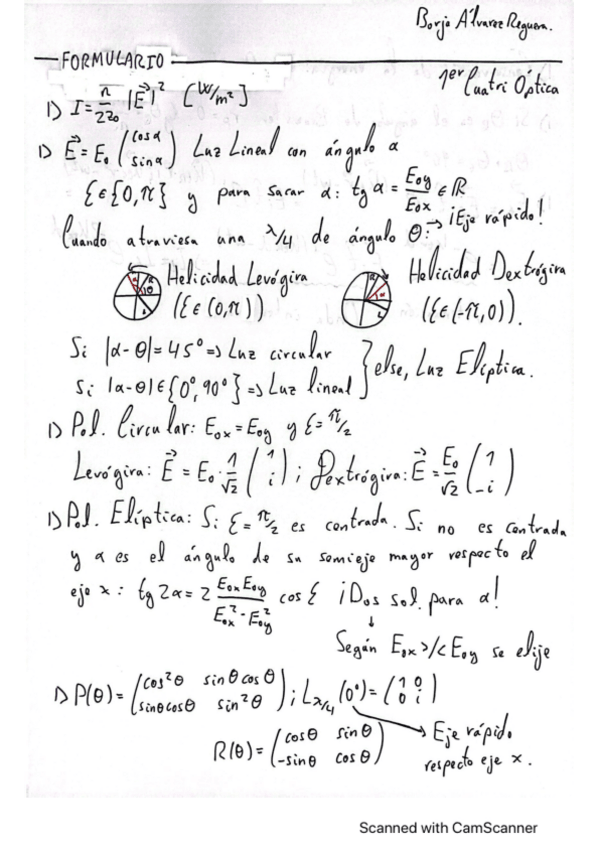 Borja Álvarez Reguera.
FORMULARIO
1er Cuatri Óptica
1) I = n/2z₀ |E⃗|² [W/m²]
1) E⃗ = E₀ (cosα sinα) Luz Lineal con ángulo α
ξ∈{0,π} y para sacar α: tg α = E₀y/E₀x ∈ ℝ
Cuando atraviesa una λ/4 de ángulo θ: → ¡Eje rápido!
Helicidad Levógira Helicidad Dextrógira
(ξ∈(0,π)) (ξ∈(-π,0)).
Si |α-θ|=45° => Luz circular
Si |α-θ|∈{0°,90°} => Luz lineal } else, Luz Elíptica.
1) Pol. Circular: E₀x = E₀y y ξ = π/2
Levógira: E⃗ = E₀ · 1/√2 (1 i) ; Dextrógira: E⃗ = E₀/√2 (1 -i)
1) Pol. Elíptica: Si ξ = π/2 es centrada. Si no es centrada
y α es el ángulo de su semieje mayor respecto el
eje x: tg 2α = 2 E₀x E₀y / E₀x² - E₀y² cos ξ ¡Dos sol. para α!
↓
Según E₀x >/< E₀y se elije
1) P(θ) = (cos²θ sinθ cosθ sinθ cosθ sin²θ) ; L λ/4 (0°) = (1 0 0 i)
R(θ) = (cosθ sinθ -sinθ cosθ) → Eje rápido
respecto eje x.
Scanned with CamScanner